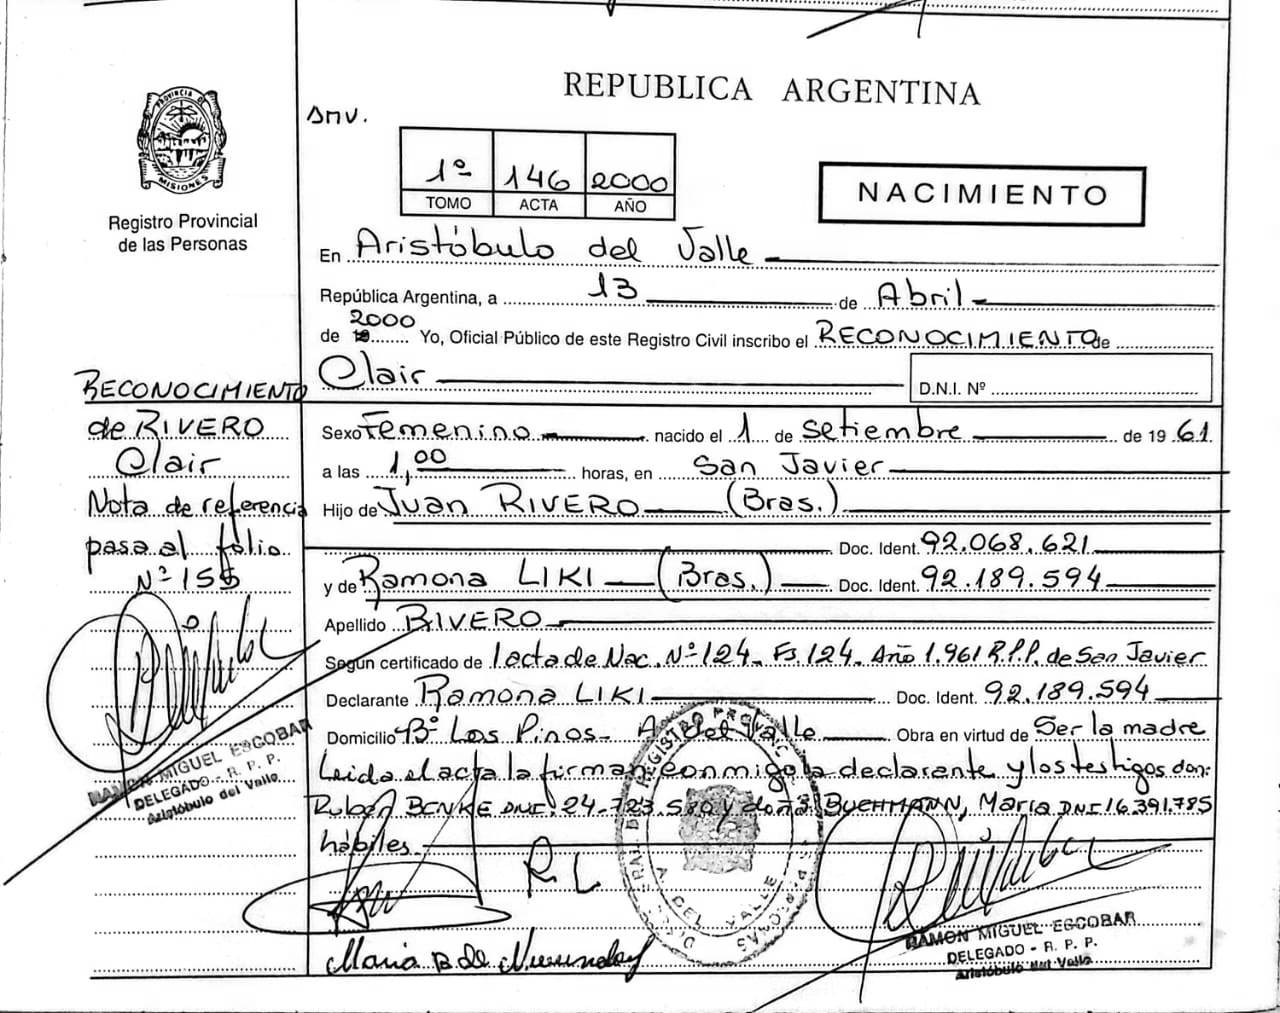 REPUBLICA ARGENTINA
PROVINCIA DE
MISIONES
Registro Provincial
de las Personas
1º 146 2000
TOMO ACTA AÑO
NACIMIENTO
En Aristóbulo del Valle
República Argentina, a 13 de Abril
de 2000 Yo, Oficial Público de este Registro Civil inscribo el RECONOCIMIENTO de
Clair D.N.I. Nº
RECONOCIMIENTO
de RIVERO
Clair
Nota de referencia
pasa al folio
Nº 155
RAMON MIGUEL ESCOBAR
DELEGADO - R. P. P.
Aristóbulo del Valle
Sexo Femenino nacido el 1 de Setiembre de 1961
a las 1,00 horas, en San Javier
Hijo de Juan RIVERO (Bras.)
Doc. Ident. 92.068.621
y de Ramona LIKI (Bras.) Doc. Ident. 92.189.594
Apellido RIVERO
Según certificado de 1 acta de Nac. Nº 124 - Fs. 124 - Año 1.961 R.P.P. de San Javier
Declarante Ramona LIKI Doc. Ident. 92.189.594
Domicilio Bº Los Pinos - A. del Valle Obra en virtud de Ser la madre
Leida el acta la firman conmigo la declarante y los testigos don:
Ruben BENKE DNI. 24.723.580 y doña BUCHMANN, Maria DNI 16.391.785
hábiles
R L
Maria B de
RAMON MIGUEL ESCOBAR
DELEGADO - R. P. P.
Aristóbulo del Valle